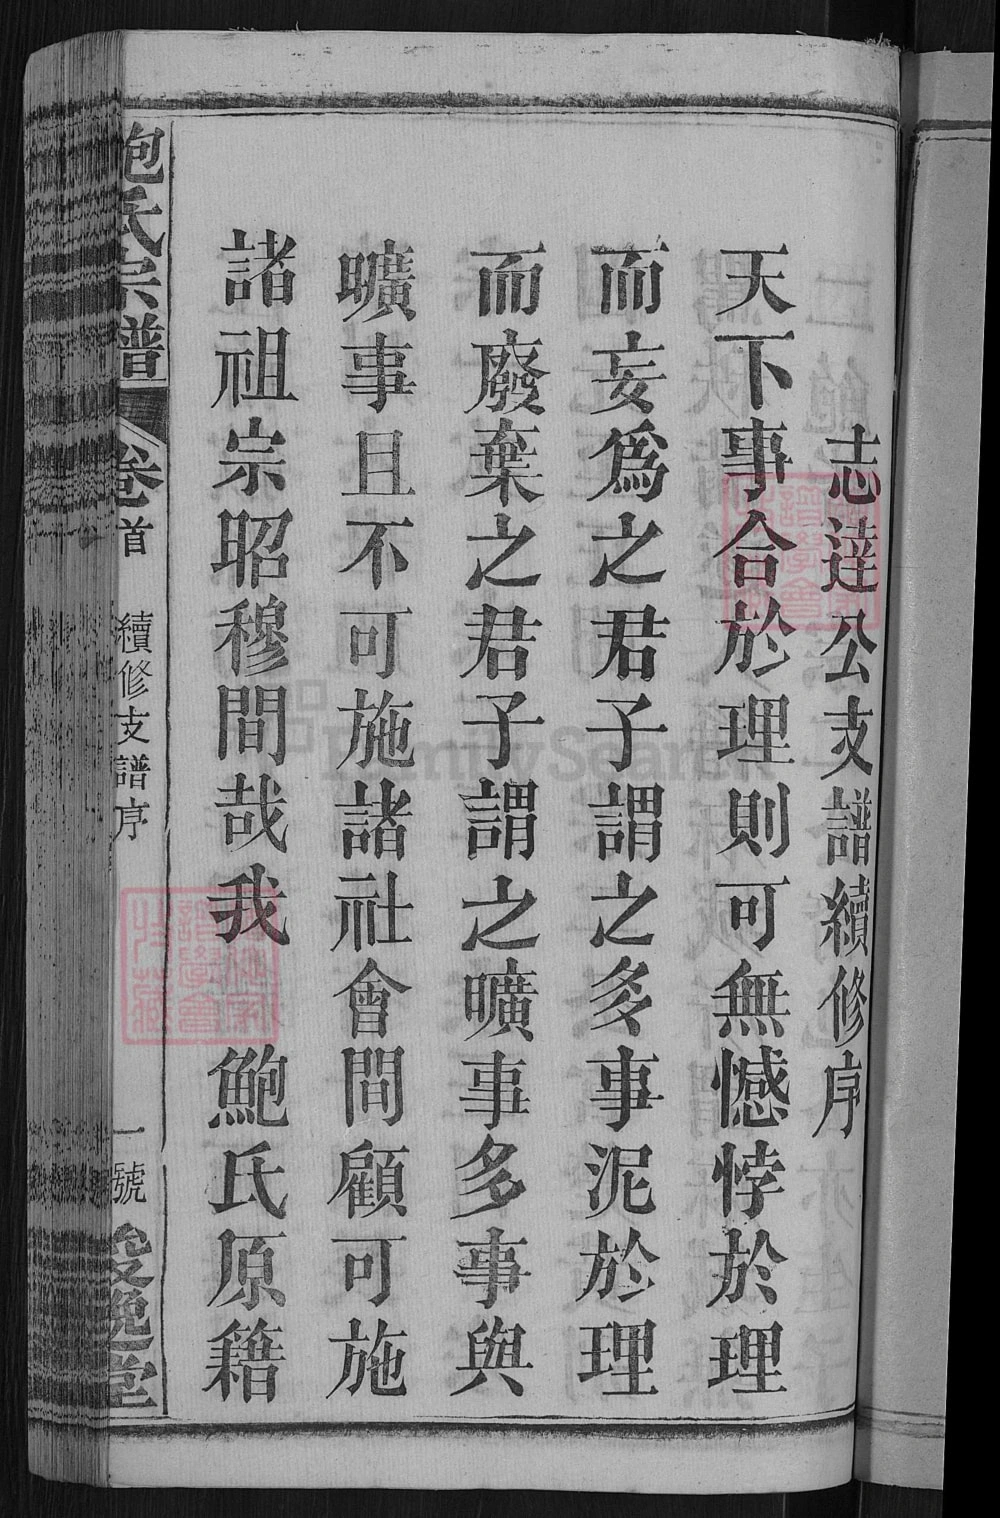 志達公支譜續修序
天下事合於理則可無憾悖於理
而妄爲之君子謂之多事泥於理
而廢棄之君子謂之曠事多事與
曠事且不可施諸社會間顧可施
諸祖宗昭穆間哉我 鮑氏原籍
鮑氏宗譜
卷首
續修支譜序
一號
FamilySearch